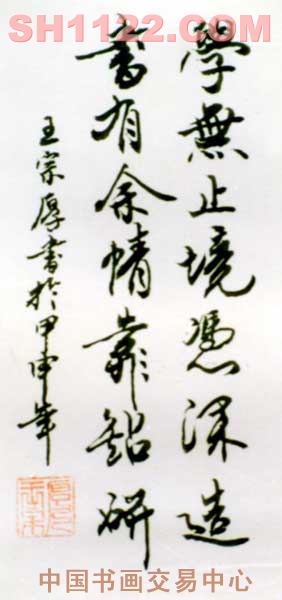 SH1122.COM
學無止境憑深造
書有余情靠鉆研
王宗厚書於甲申年
中国书画交易中心